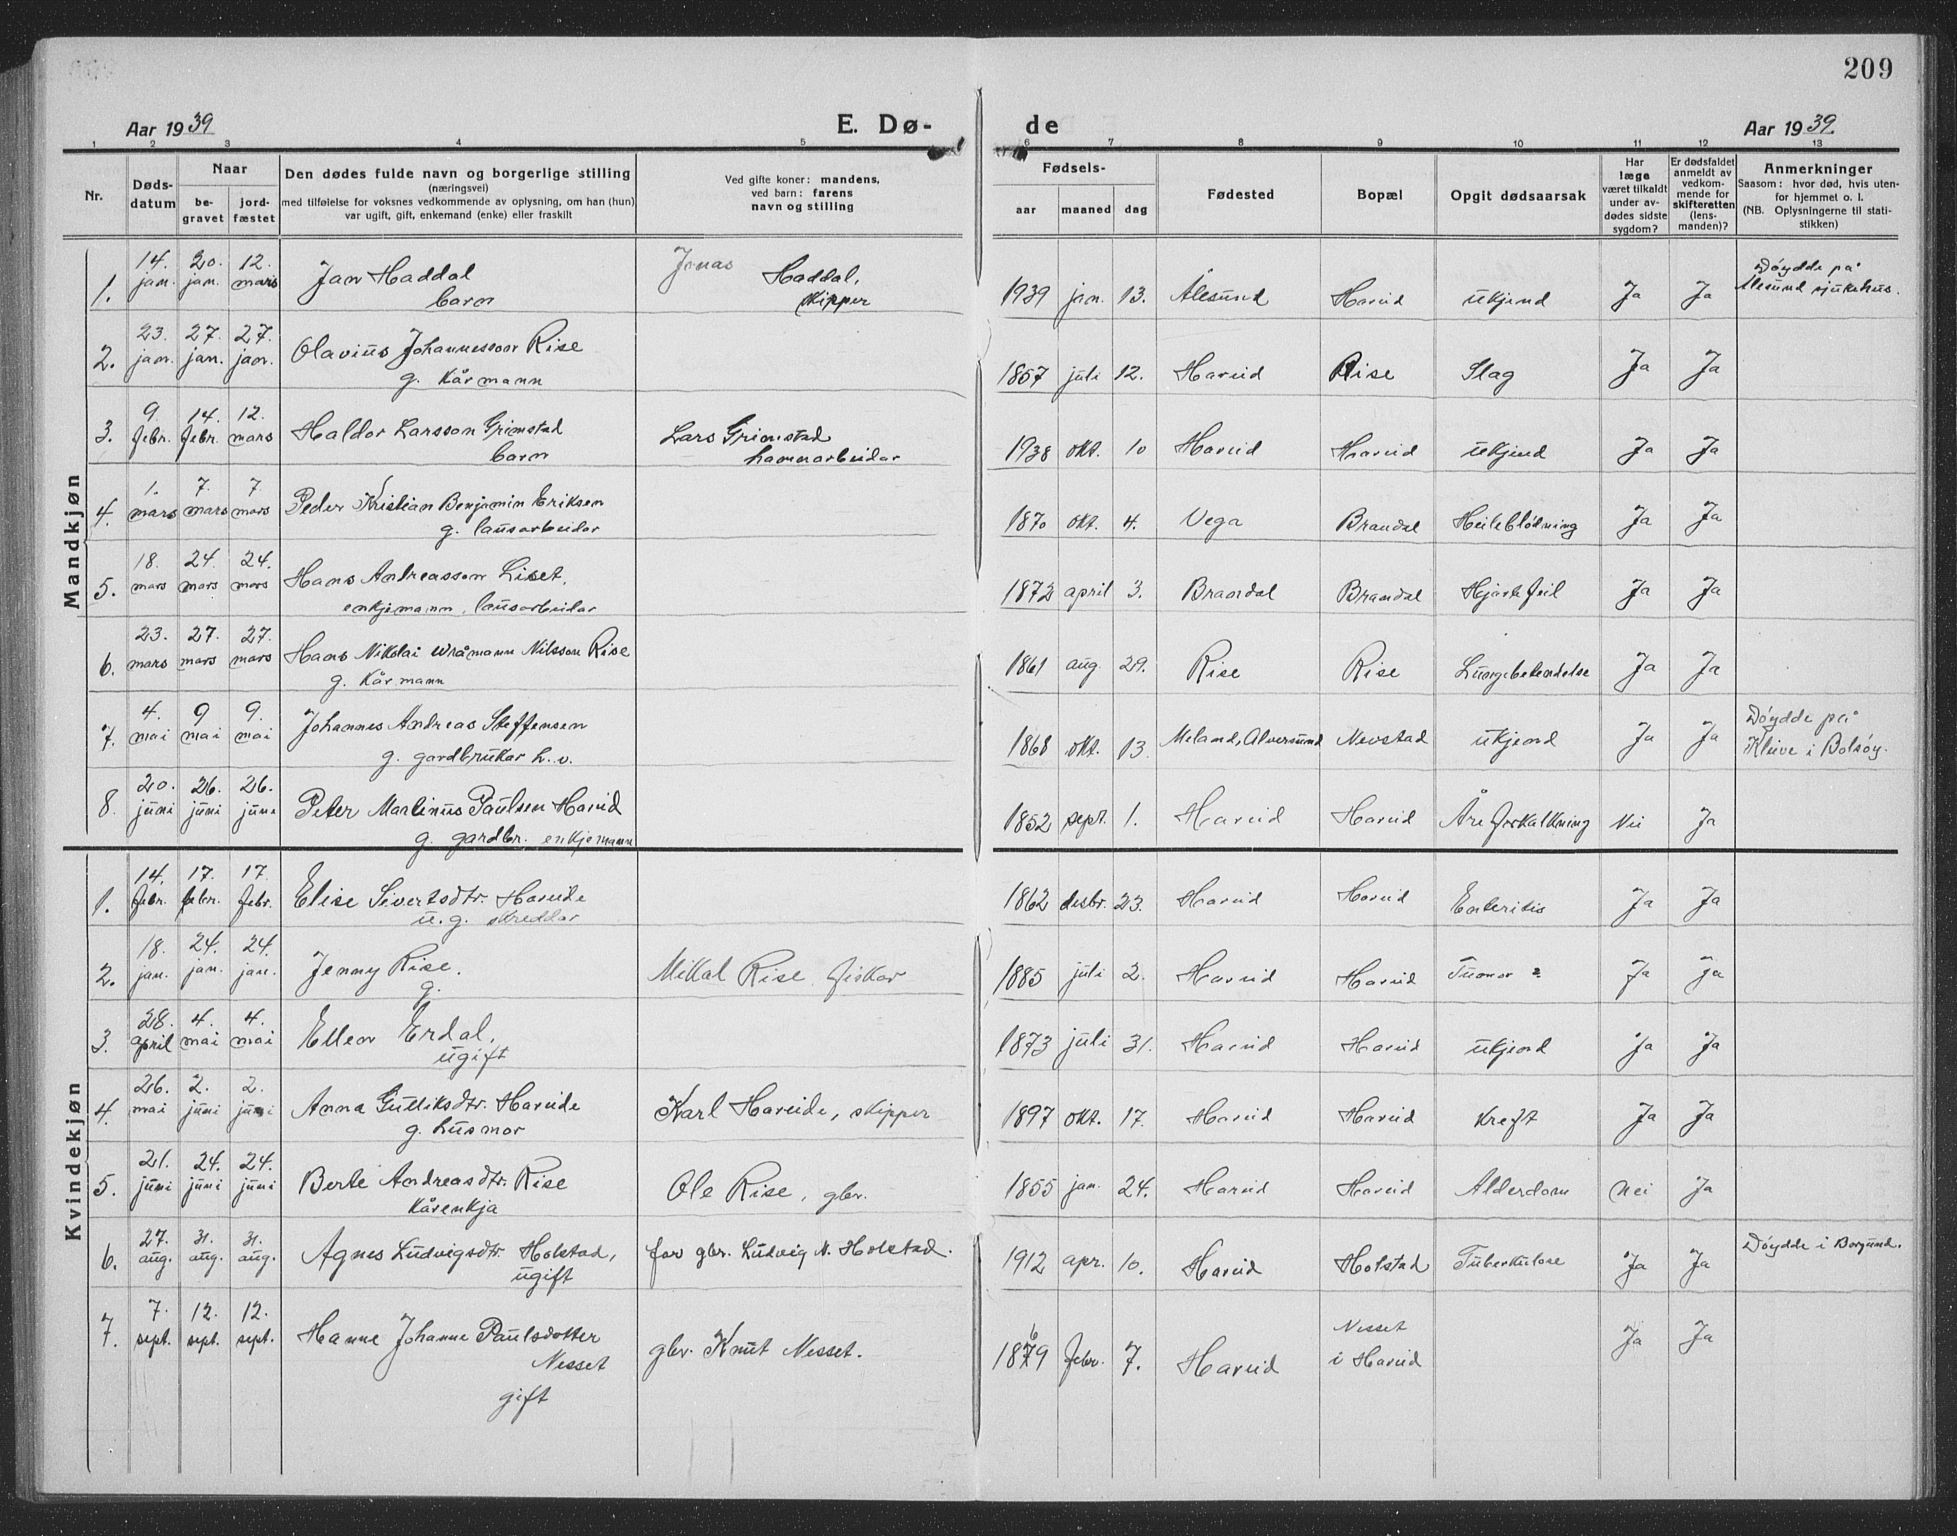 209
Aar 1939
E. Dø-
de
Aar 1939.
1 2 3 4 5 6 7 8 9 10 11 12 13
Nr.
Døds-
datum
Naar
be-
gravet
jord-
fæstet
Den dødes fulde navn og borgerlige stilling
(næringsvei)
med tilføielse for voksnes vedkommende av oplysning, om han (hun)
var ugift, gift, enkemand (enke) eller fraskilt
Ved gifte koner: mandens,
ved barn: farens
navn og stilling
Fødsels-
aar maaned dag
Fødested
Bopæl
Opgit dødsaarsak
Har
læge
været tilkaldt
under av-
dødes sidste
sygdom?
Er dødsfaldet
anmeldt av
vedkom-
mende for
skifteretten
(lens-
manden)?
Anmerkninger
Saasom: hvor død, hvis uten-
for hjemmet o. l.
(NB. Oplysningerne til stati-
stikken)
Mandkjøn
1. 14. jan. 20. jan. 12. mars Jan Haddal Jonas Haddal, 1939 jan. 13. Ålesund Hareid ukjend Ja Ja Döydde på
barn skipper Ålesund sjukehus.
2. 23. jan. 27. jan. 27. jan. Olavius Johannesson Rise 1857 juli 12. Hareid Rise Slag Ja Ja
g. kårmann
3. 9. febr. 14. febr. 12. mars Haldor Larsson Grimstad Lars Grimstad 1938 okt. 10 Hareid Hareid ukjend Ja Ja
barn hamnarbeidar
4. 1. mars 7. mars 7. mars Peder Kristian Benjamin Eriksen 1870 okt. 4. Vega Brandal Heileblödning Ja Ja
g. lausarbeidar
5. 18. mars 24. mars 24. mars Hans Andreasson Liset, 1872 april 3. Brandal Brandal Hjartefeil Ja Ja
enkjemann, lausarbeidar
6. 23. mars 27. mars 27. mars Hans Nikolai Wråmann Nilsson Rise 1861 aug. 29. Rise Rise Lungebetendelse Ja Ja
g. kårmann
7. 4. mai 9 mai 9. mai Johannes Andreas Steffensen 1868 okt. 13 Meland, Alversund Nevstad ukjend Ja Ja Döydde på
g. gardbrukar h.v. Kleive i Bolsöy.
8. 20. juni 26. juni 26. juni Peter Martinus Paulsen Hareid 1852 sept. 1. Hareid Hareid Åreforkalkning Nei Ja
g. gardbr. enkjemann
Kvindekjøn
1. 14. febr. 17. febr. 17. febr. Elise Sivertsdtr. Hareide 1862 desbr. 23. Hareid Hareid Enteritis Ja Ja
u.g. skreddar
2. 18. jan. 24. jan. 24. jan. Jenny Rise. Mikal Rise fiskar 1885 juli 2. Hareid Hareid Tumor ? Ja Ja
g.
3. 28. april 4. mai 4. mai Ellen Erdal, 1873 juli 31. Hareid Hareid ukjend Ja Ja
ugift
4. 26. mai 2. juni 2. juni Anna Gulliksdtr. Hareide Karl Hareide, skipper 1897 okt. 17. Hareid Hareid Kreft Ja Ja
g. husmor
5. 21. juni 24. juni 24. juni Berte Andreasdtr. Rise Ole Rise, gbr. 1855 jan. 24. Hareid Hareid Alderdom Nei Ja
Kårenkja
6. 27. aug. 31. aug. 31. aug. Agnes Ludvigsdtr. Holstad, far gbr. Ludvig N. Holstad. 1912 apr. 10. Hareid Holstad Tuberkulose Ja Ja Döydde i Borgund.
ugift
7. 7. sept. 12. sept. 12. sept. Hanne Johanne Paulsdotter gbr. Knut Nesset. 1879 6 febr. 7. Hareid Nesset Ja Ja
Nesset i Hareid
gift